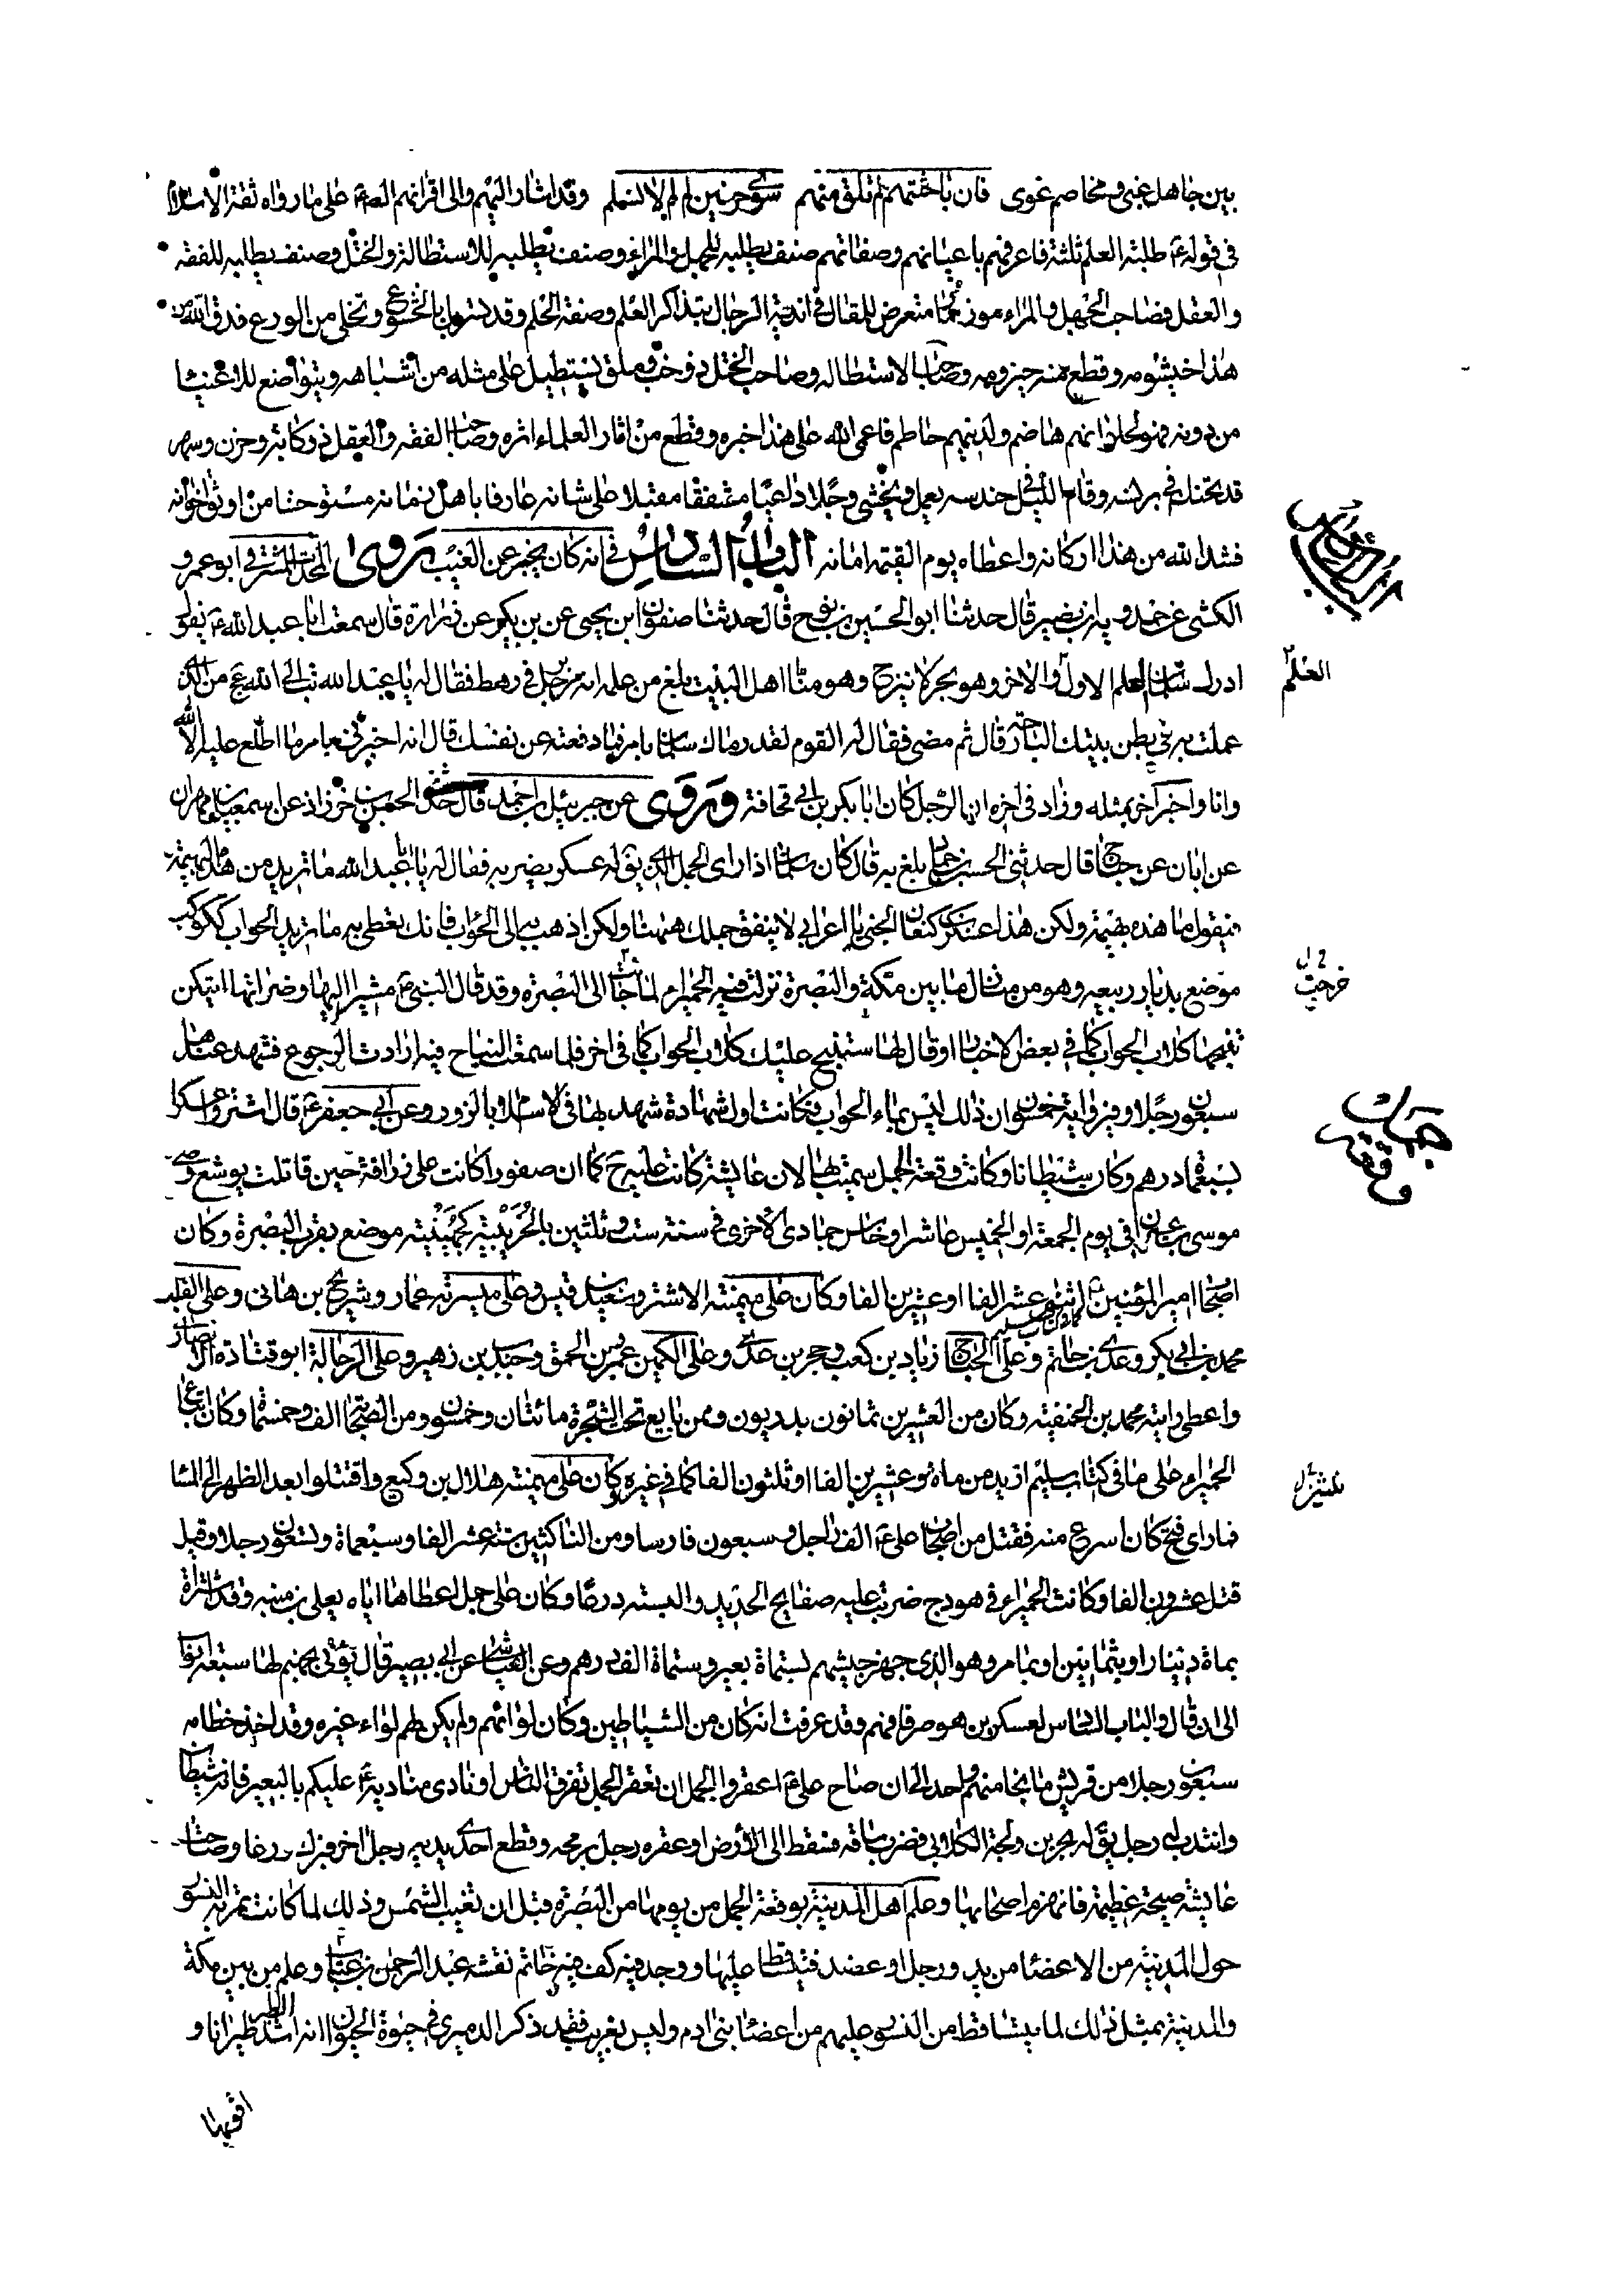 بين جاهل غبى ومخاصم غوى فان باحثتهم لم تلق منهم سوى حرفين لم لم لا نسلم وقد اشار اليهم والى اقرانهم الصادق ع على ما رواه ثقة الاسلام
فى قوله ع طلبة العلم ثلثة فاعرفهم باعيانهم وصفاتهم صنف يطلبه للجهل والمراء وصنف يطلبه للاستطالة والختل وصنف يطلبه للفقه
والعقل فصاحب الجهل والمراء موذ ممار متعرض للمقال فى اندية الرجال بتذاكر العلم وصفة الحلم وقد تسربل بالخشوع وتخلى من الورع فدق الله من
هذا خيشومه وقطع منه حيزومه وصاحب الاستطالة وصاحب الختل ذو خب وملق يستطيل على مثله من اشباهه ويتواضع للاغنياء
من دونه فهو لحلوائهم هاضم ولدينهم حاطم فاعمى الله على هذا خبره وقطع من اثار العلماء اثره وصاحب الفقه والعقل ذو كابة وحزن وسهر
قد تحنك فى برنسه وقام الليل فى حندسه يعمل ويخشى وجلا داعيا مشفقا مقبلا على شانه عارفا باهل زمانه مستوحشا من اوثق اخوانه
فشد الله من هذا اركانه واعطاه يوم القيمة امانه الباب السادس فى انه كان يخبر عن الغيب روى المحدث المشتر فى ابو عمرو
الكشى عن حمدويه بن نصير قال حدثنا ابو الحسين بن نوح قال حدثنا صفوان بن يحيى عن بن بكير عن زرارة قال سمعت ابا عبد الله ع يقول
ادرك سلمان العلم الاول والاخر وهو بحر لا ينزح وهو منا اهل البيت بلغ من علمه انه مر برجل فى رهط فقال له يا عبد الله تب الى الله عج من الذى
عملت به فى بطن بيتك البارحة قال ثم مضى فقال له القوم لقد رماك سلمان بامر فما دفعته عن نفسك قال انه اخبرنى بامر ما اطلع عليه الا الله
وانا واخبر آخر بمثله وزاد فى اخره ان الرجل كان ابا بكر بن ابى قحافة وروى عن جبرئيل بن احمد قال حدثنى الحسن بن خرزاذ عن اسمعيل بن مهران
عن ابان عن جناح قال حدثنى الحسن بن حماد بلغ به قال كان سلمان اذا راى الجمل الذى يق له عسكر يضربه فقال له يا ابا عبد الله ما تريد من هذه البهيمة
فيقول ما هذه بهيمة ولكن هذا عسكر بن كنعان الجنى يا اعرابى لا ينفق جملك ههنا ولكن اذهب به الى الحواب فانك تعطى به ما تريد الحواب ككوكب
موضع بديار ربيعه وهو من منازل ما بين مكة والبصرة نزلت فيه الحميراء لما جاءت الى البصرة وقد قال النبى ص مشيرا اليها وضراتها ايتكن
تنبحها كلاب الحواب كما فى بعض الاخبار او قال لها ستنبح عليك كلاب الحواب كما فى اخر فلما سمعت النباح فيه ارادت الرجوع فشهد عندها
سبعون رجلا وفى رواية خمسون ان ذلك ليس بماء الحواب فكانت اول شهادة شهد بها فى الاسلام بالزور وعن ابى جعفر ع قال اشتروا عسكرا
بسبعمائة درهم وكان شيطانا وكانت وقعة الجمل سميت بها لان عايشة كانت عليه ح كما ان صفورا كانت على زرافة حين قاتلت يوشع وصى
موسى بن عمران فى يوم الجمعة او الخميس عاشر او خامس جمادى الاخرى فى سنة ست وثلثين بالخريبية كجهينة موضع بقرب البصرة وكان
اصحاب امير المؤمنين ع اثنى عشر الفا او عشرين الفا وكان على ميمنته الاشتر وسعيد بن قيس وعلى ميسرته عمار وشريح بن هانى وعلى القلب
محمد بن ابى بكر وعدى بن حاتم وعلى الجناح زياد بن كعب وحجر بن عدى وعلى الكمين عمرو بن الحمق وجندب بن زهير وعلى الرجالة ابو قتادة الانصارى
واعطى رايته محمد بن الحنفية وكان من العشرين ثمانون بدريون وممن بايع تحت الشجرة مائتان وخمسون ومن الصحابة الف وخمسمائة وكان اتباع
الحميراء على ما فى كتاب سليم ازيد من ماة وعشرين الفا او ثلثون الفا كما فى غيره كان على ميمنته هلال بن وكيع واقتتلوا بعد الظهر الى المسا
فما راى فتح كان اسرع منه فقتل من اصحاب على ع الف راجل وسبعون فارسا ومن الناكثين ستة عشر الفا وسبعماة وتسعون رجلا وقيل
قتل عشرون الفا وكانت الحميراء فى هودج ضربت عليه صفايح الحديد والبسته درعا وكان على جمل اعطاها اياه يعلى بن منيه وقد اشتراه
بماة دينار او بثمانين او بمامر وهو الذى جهز جيشهم بستماة بعير وستماة الف درهم وعن العياشى عن ابى بصير قال يؤتى بجهنم لها سبعة ابواب
الى ان قال والباب السادس لعسكر بن هوصر فافهم وقد عرفت انه كان من الشياطين وكان لوائهم ولم يكن لهم لواء غيره وقد اخذ خطامه
سبعون رجلا من قريش ما نجا منهم واحد الى ان صاح على ع اعقروا الجمل ان تعقر الجمل تفرق الناس او نادى مناديه ع عليكم بالبعير فانه شيطان
وانتدب له رجل يق له بجر بن دلجة الكلابى فضرب ساقه فسقط الى الارض او عقره رجل برمحه وقطع احدى يديه رجل اخر فبرك ورغا وصاحت
عايشة صيحة عظيمة فانهزم اصحابها وعلم اهل المدينة بوقعة الجمل من يومها من البصرة قبل ان تغيب الشمس وذلك لما كانت تمر به النسور
حول المدينة من الاعضاء من يد ورجل او عضد فيتساقط عليها ووجد فيه كف فيه خاتم نقشه عبد الرحمن بن عتاب وعلم من بين مكة
والمدينة بمثل ذلك لما يتساقط من النسور عليهم من اعضاء بنى ادم وليس بغريب فقد ذكر الدميرى فى حيوة الحيوان انه اشد الطير طيرانا و
اقويها
العلم
خ ل
خرجت
حرب
وقعه
ثلثين ل